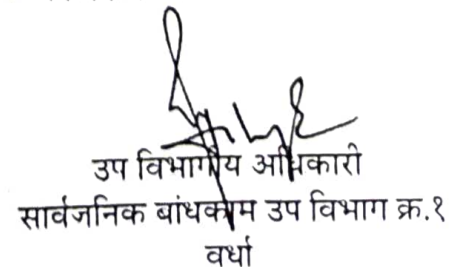 उप विभागीय अधिकारी
सार्वजनिक बांधकाम उप विभाग क्र.१
वर्धा